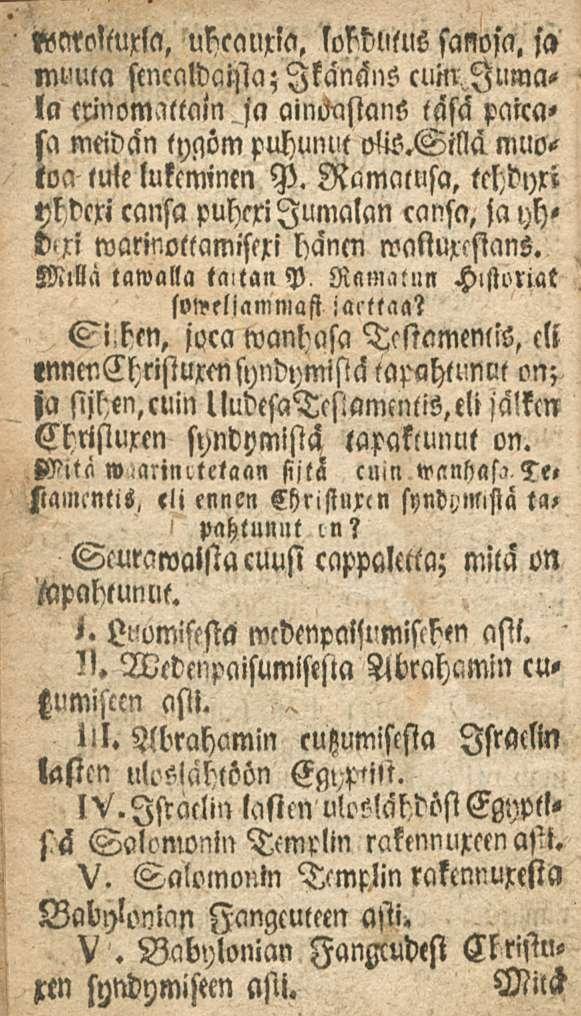 waroituxia, uhcauxia, lohdutus sanoja, ja
muuta sencaldaista; Ikänäns cuin Juma-
la erinomattain ja ainoastans täsä paica-
sa meidän tygöm puhunut olis. Sillä muo-
toa tule lukeminen P. Ramatusa, tehdyxi
yhdexi cansa puhexi Jumalan cansa, ja yh-
dexi warinottamisexi hänen wastuxestans.
Millä tawalla taitan P. Ramatun Historiat
soweljammast jaettaa?
Siihen, joca wanhasa Testamentis, eli
ennen Christuxen syndymistä tapahtunut on;
ja sijhen, cuin Uudesa Testamentis, eli jälken
Christuxen syndymistä tapaktunut on.
Mitä waarinotetaan sijtä cuin wanhasa Te-
stamentis, eli ennen Christuxen syndymistä ta-
pahtunut on?
Seurawaista cuusi cappaletta; mitä on
tapahtunut.
I. Luomisesta wedenpaisumisehen asti.
II. Wedenpaisumisesta Abrahamin cu-
tzumiseen asti.
III. Abrahamin cutzumisesta Israelin
lasten uloslähtöön Egyptist.
IV. Israelin lasten uloslähdöst Egypti-
stä Salomonin Templin rakennuxeen asti.
V. Salomonin Templin rakennuxesta
Babylonian Fangeuteen asti.
V . Babylonian Fangeudest Christu-
xen syndymiseen asti. Mitä